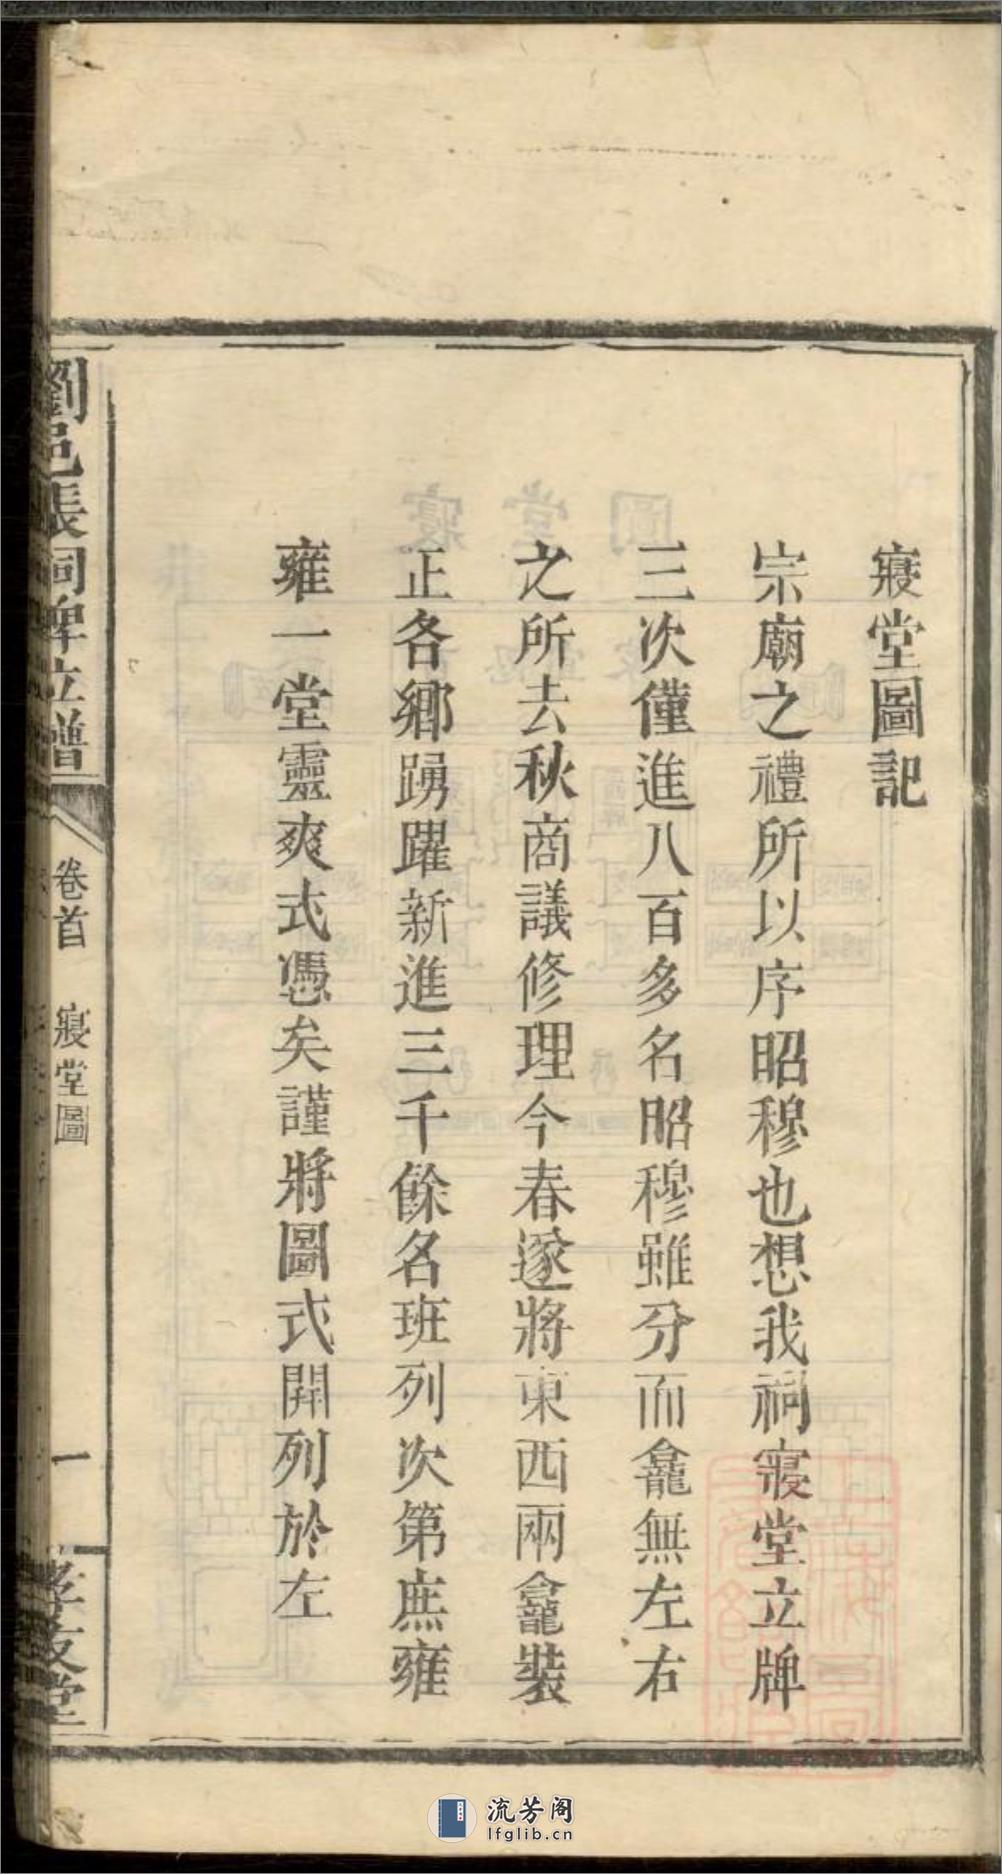 寢堂圖記
宗廟之禮所以序昭穆也想我祠寢堂立牌
三次僅進八百多名昭穆雖分而龕無左右
之所去秋商議修理今春遂將東西兩龕裝
正各鄉踴躍新進三千餘名班列次第庶雍
雍一堂靈爽式憑矣謹將圖式開列於左
劉邑張祠牌立譜
卷首
寢堂圖
一
孝友堂
流芳阁
lfglib.cn